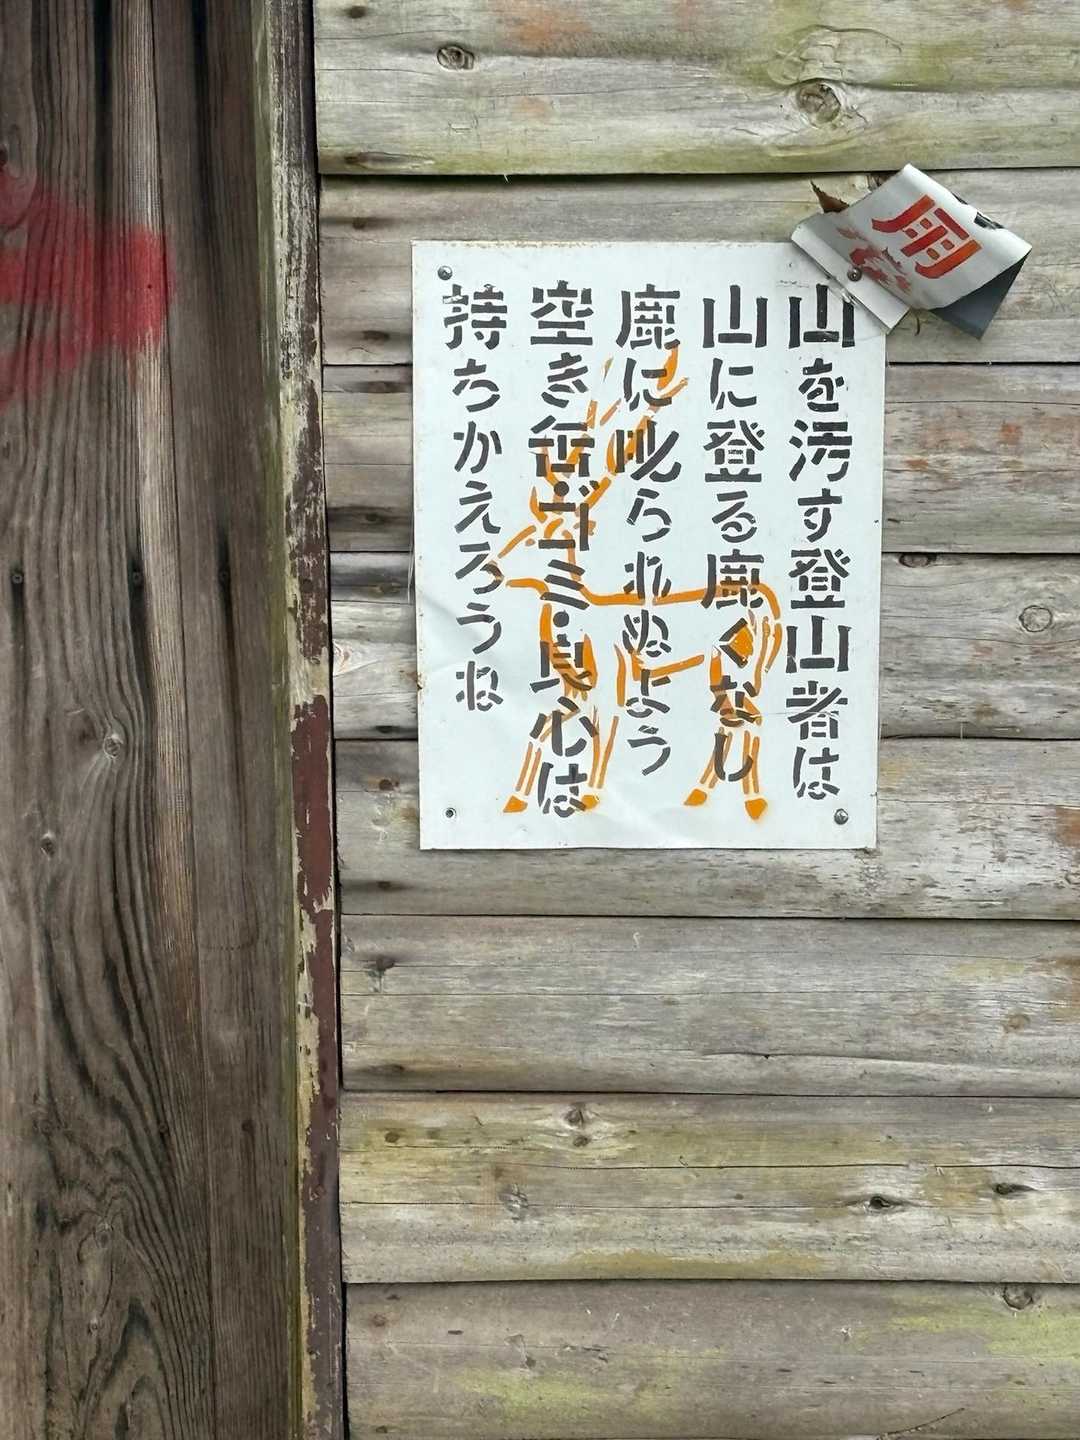 山を汚す登山者は
山に登る鹿くなし
鹿に叱られぬよう
空き缶ゴミ・良心は
持ちかえろうね